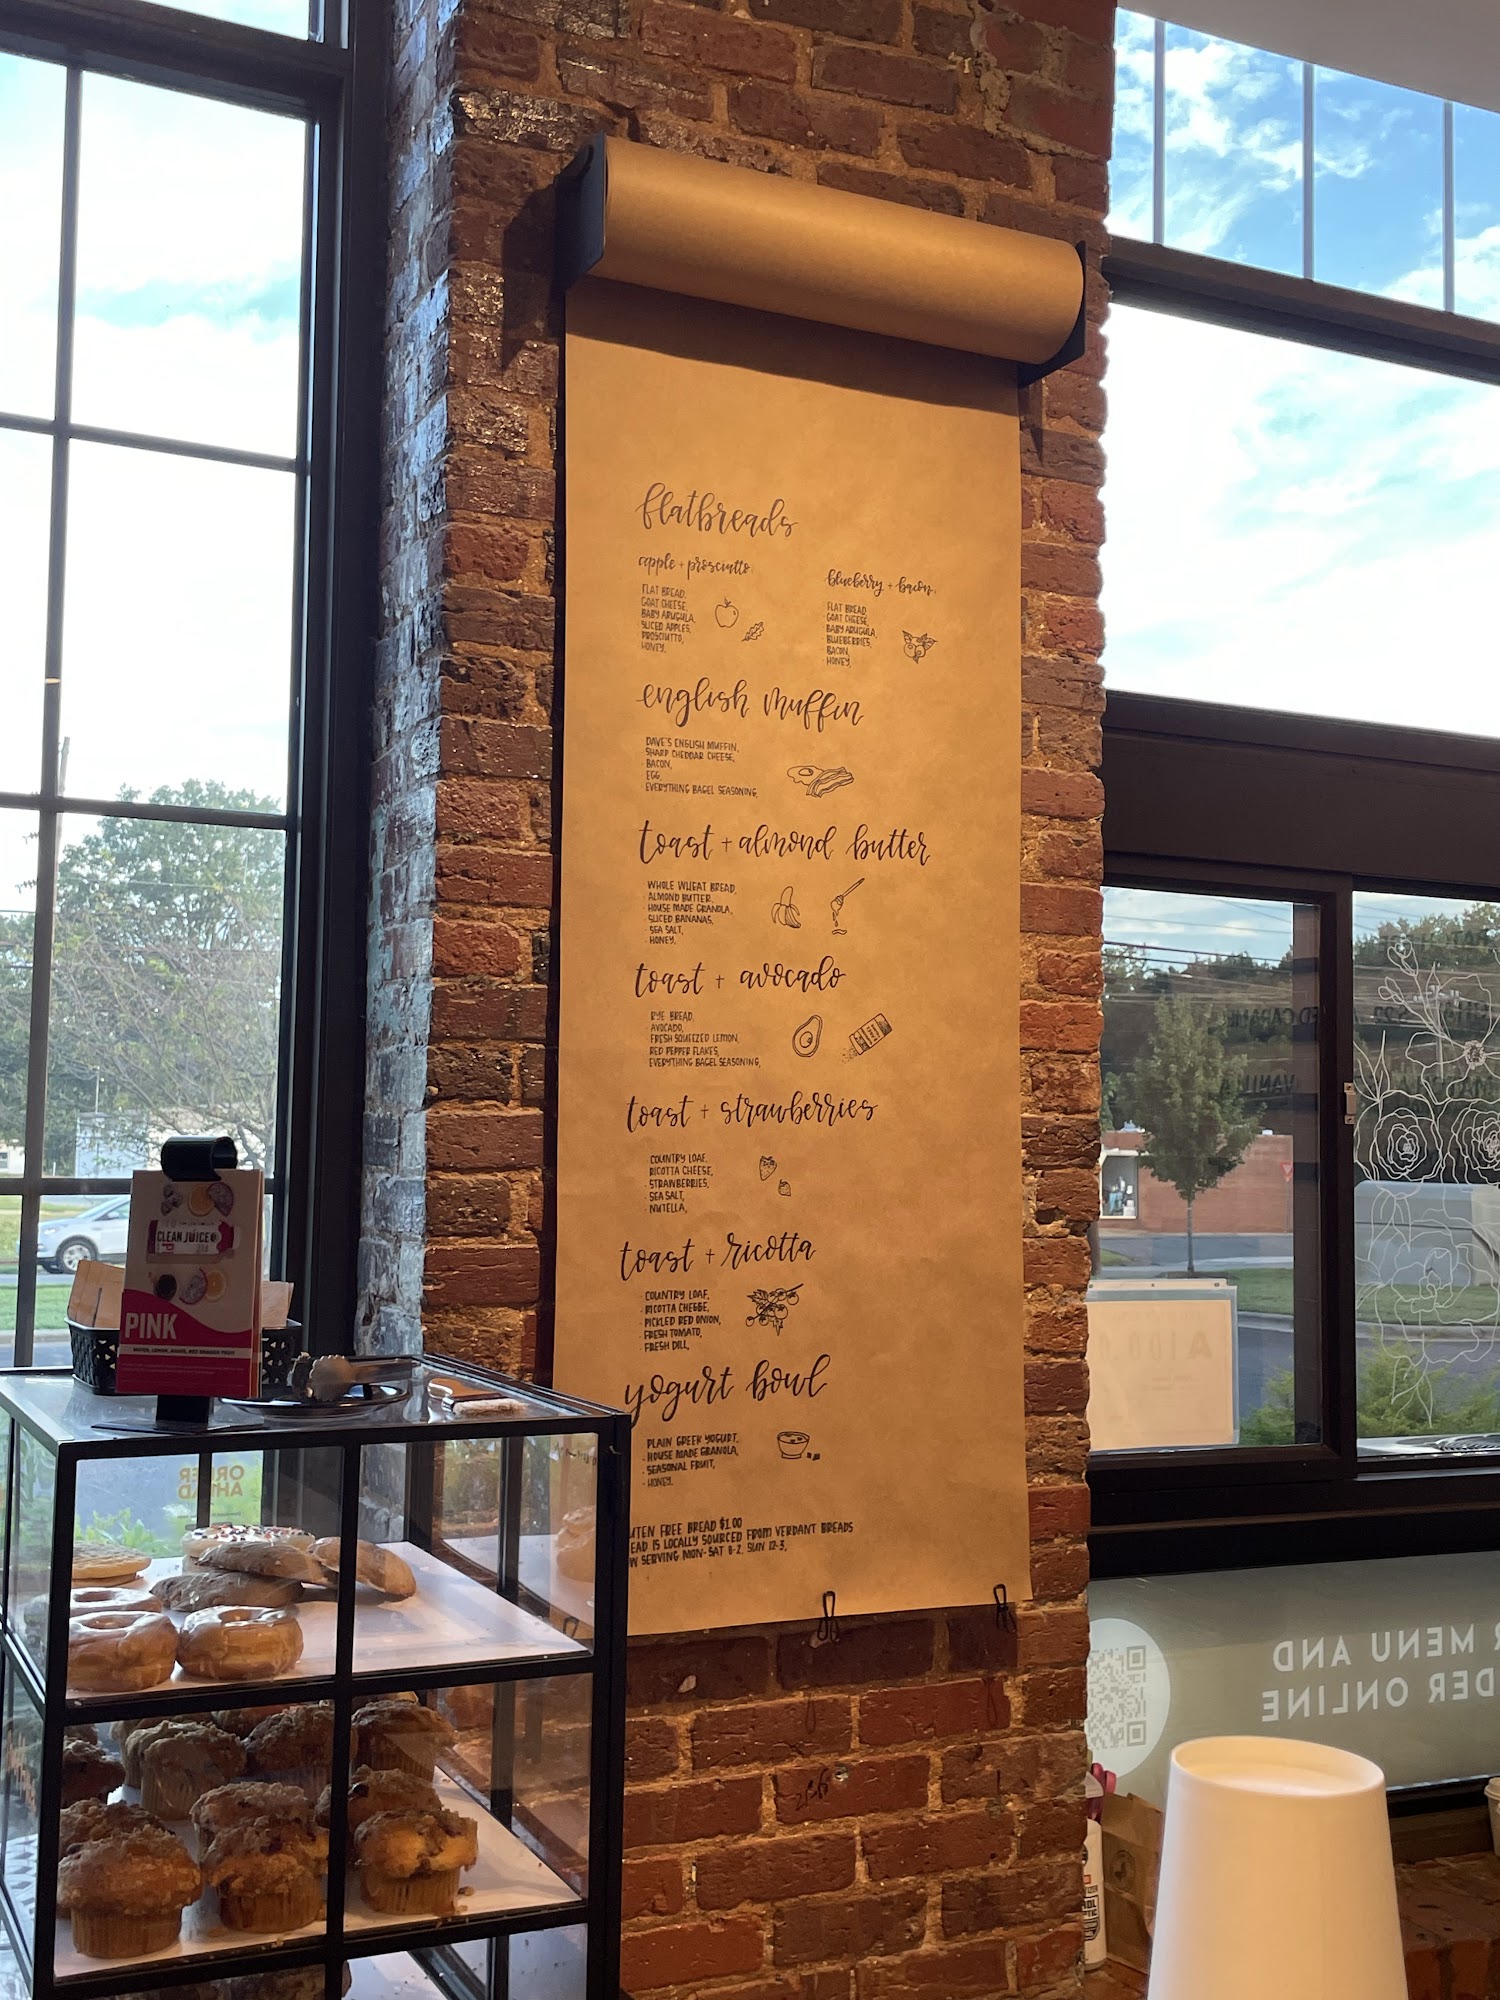 flatbreads
apple + prosciutto
FLAT BREAD,
GOAT CHEESE,
BABY ARUGULA,
SLICED APPLES,
PROSCIUTTO,
HONEY,
blueberry + bacon
FLAT BREAD,
GOAT CHEESE,
BABY ARUGULA,
BLUEBERRIES,
BACON,
HONEY,
english muffin
DAVE'S ENGLISH MUFFIN,
SHARP CHEDDAR CHEESE,
BACON,
EGG,
EVERYTHING BAGEL SEASONING,
toast + almond butter
WHOLE WHEAT BREAD,
ALMOND BUTTER,
HOUSE MADE GRANOLA,
SLICED BANANAS,
SEA SALT,
HONEY,
toast + avocado
RYE BREAD,
AVOCADO,
FRESH SQUEEZED LEMON,
RED PEPPER FLAKES,
EVERYTHING BAGEL SEASONING,
toast + strawberries
COUNTRY LOAF,
RICOTTA CHEESE,
STRAWBERRIES,
SEA SALT,
NUTELLA,
toast + ricotta
COUNTRY LOAF,
RICOTTA CHEESE,
PICKLED RED ONION,
FRESH TOMATO,
FRESH DILL,
yogurt bowl
PLAIN GREEK YOGURT,
HOUSE MADE GRANOLA,
SEASONAL FRUIT,
HONEY,
UTEN FREE BREAD $1.00
EAD IS LOCALLY SOURCED FROM VERDANT BREADS
W SERVING MON-SAT 8-2, SUN 12-3,
CLEAN JUICE
PINK
WATER, LEMON, AGAVE, RED DRAGON FRUIT
ORDER
AHEAD
R MENU AND
DER ONLINE